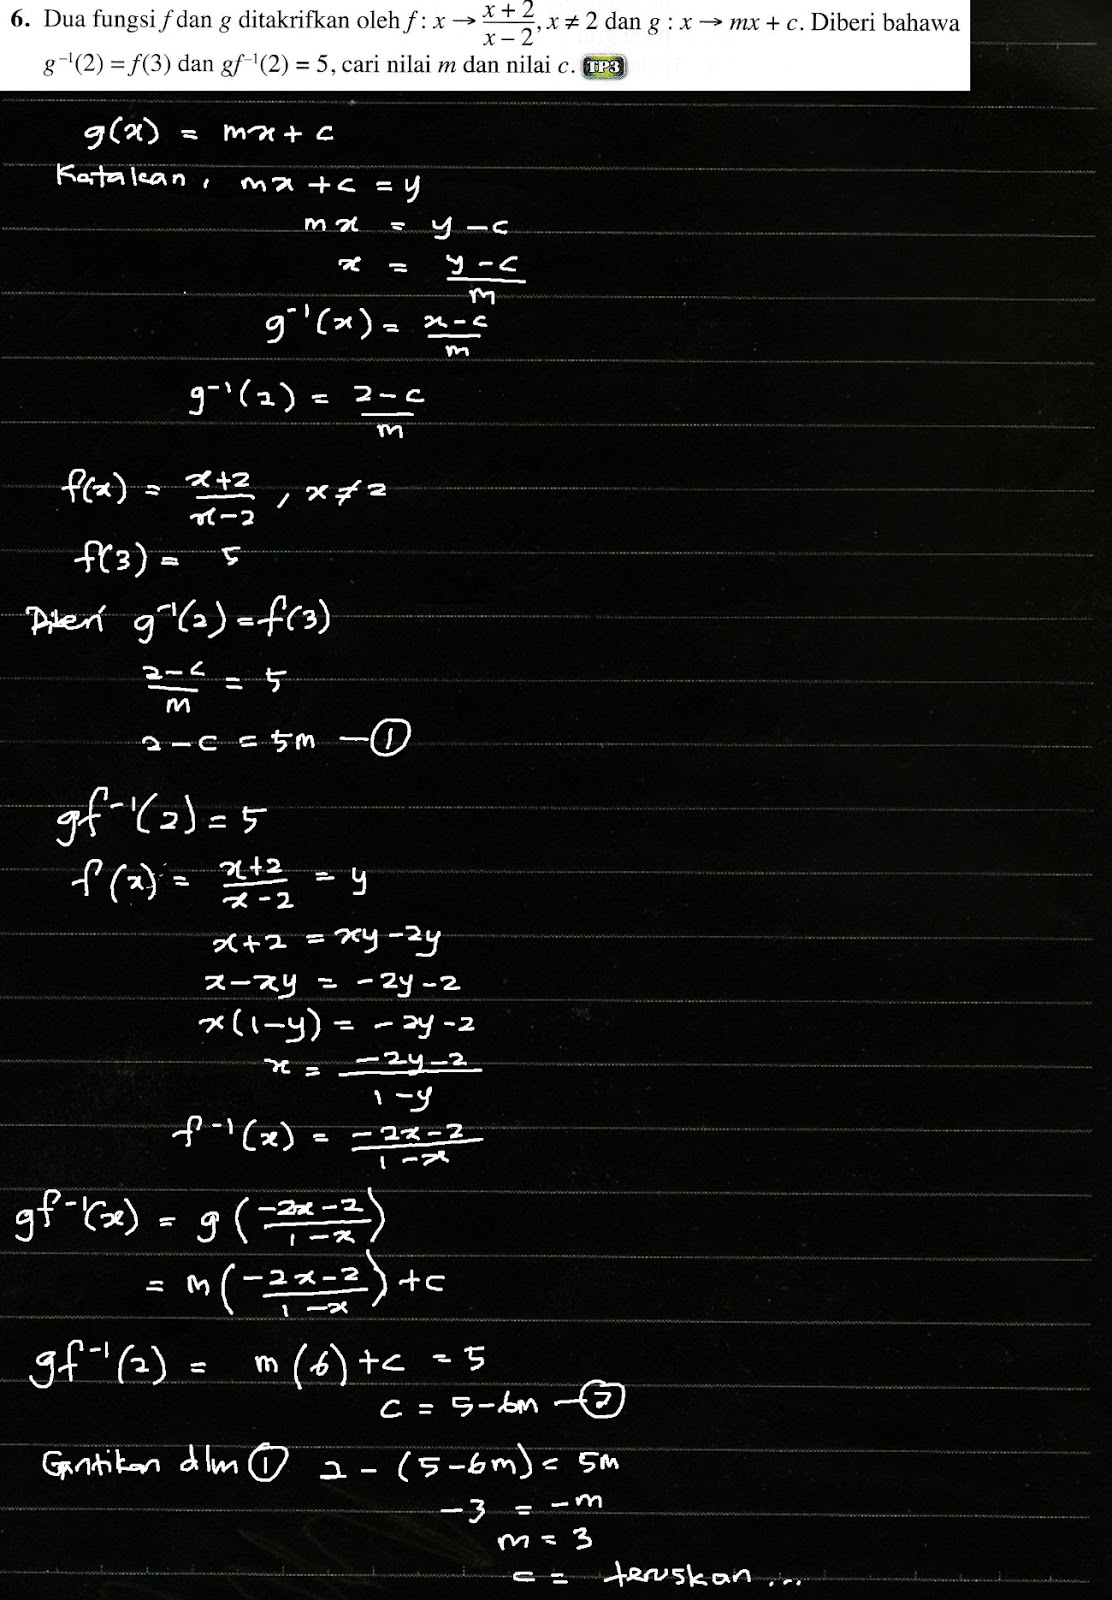 6. Dua fungsi f dan g ditakrifkan oleh f : x → (x + 2)/(x − 2), x ≠ 2 dan g : x → mx + c. Diberi bahawa
g⁻¹(2) = f(3) dan gf⁻¹(2) = 5, cari nilai m dan nilai c. TP3
g(x) = mx + c
Katakan, mx + c = y
mx = y − c
x = (y − c)/m
g⁻¹(x) = (x − c)/m
g⁻¹(2) = (2 − c)/m
f(x) = (x+2)/(x−2), x ≠ 2
f(3) = 5
Diberi g⁻¹(2) = f(3)
(2 − c)/m = 5
2 − c = 5m — ①
gf⁻¹(2) = 5
f(x) = (x+2)/(x−2) = y
x + 2 = xy − 2y
x − xy = −2y − 2
x(1−y) = −2y − 2
x = (−2y − 2)/(1 − y)
f⁻¹(x) = (−2x − 2)/(1 − x)
gf⁻¹(x) = g((−2x − 2)/(1 − x))
= m((−2x − 2)/(1 − x)) + c
gf⁻¹(2) = m(6) + c = 5
c = 5 − 6m — ②
Gantikan dlm ① 2 − (5 − 6m) = 5m
−3 = −m
m = 3
c = teruskan ...